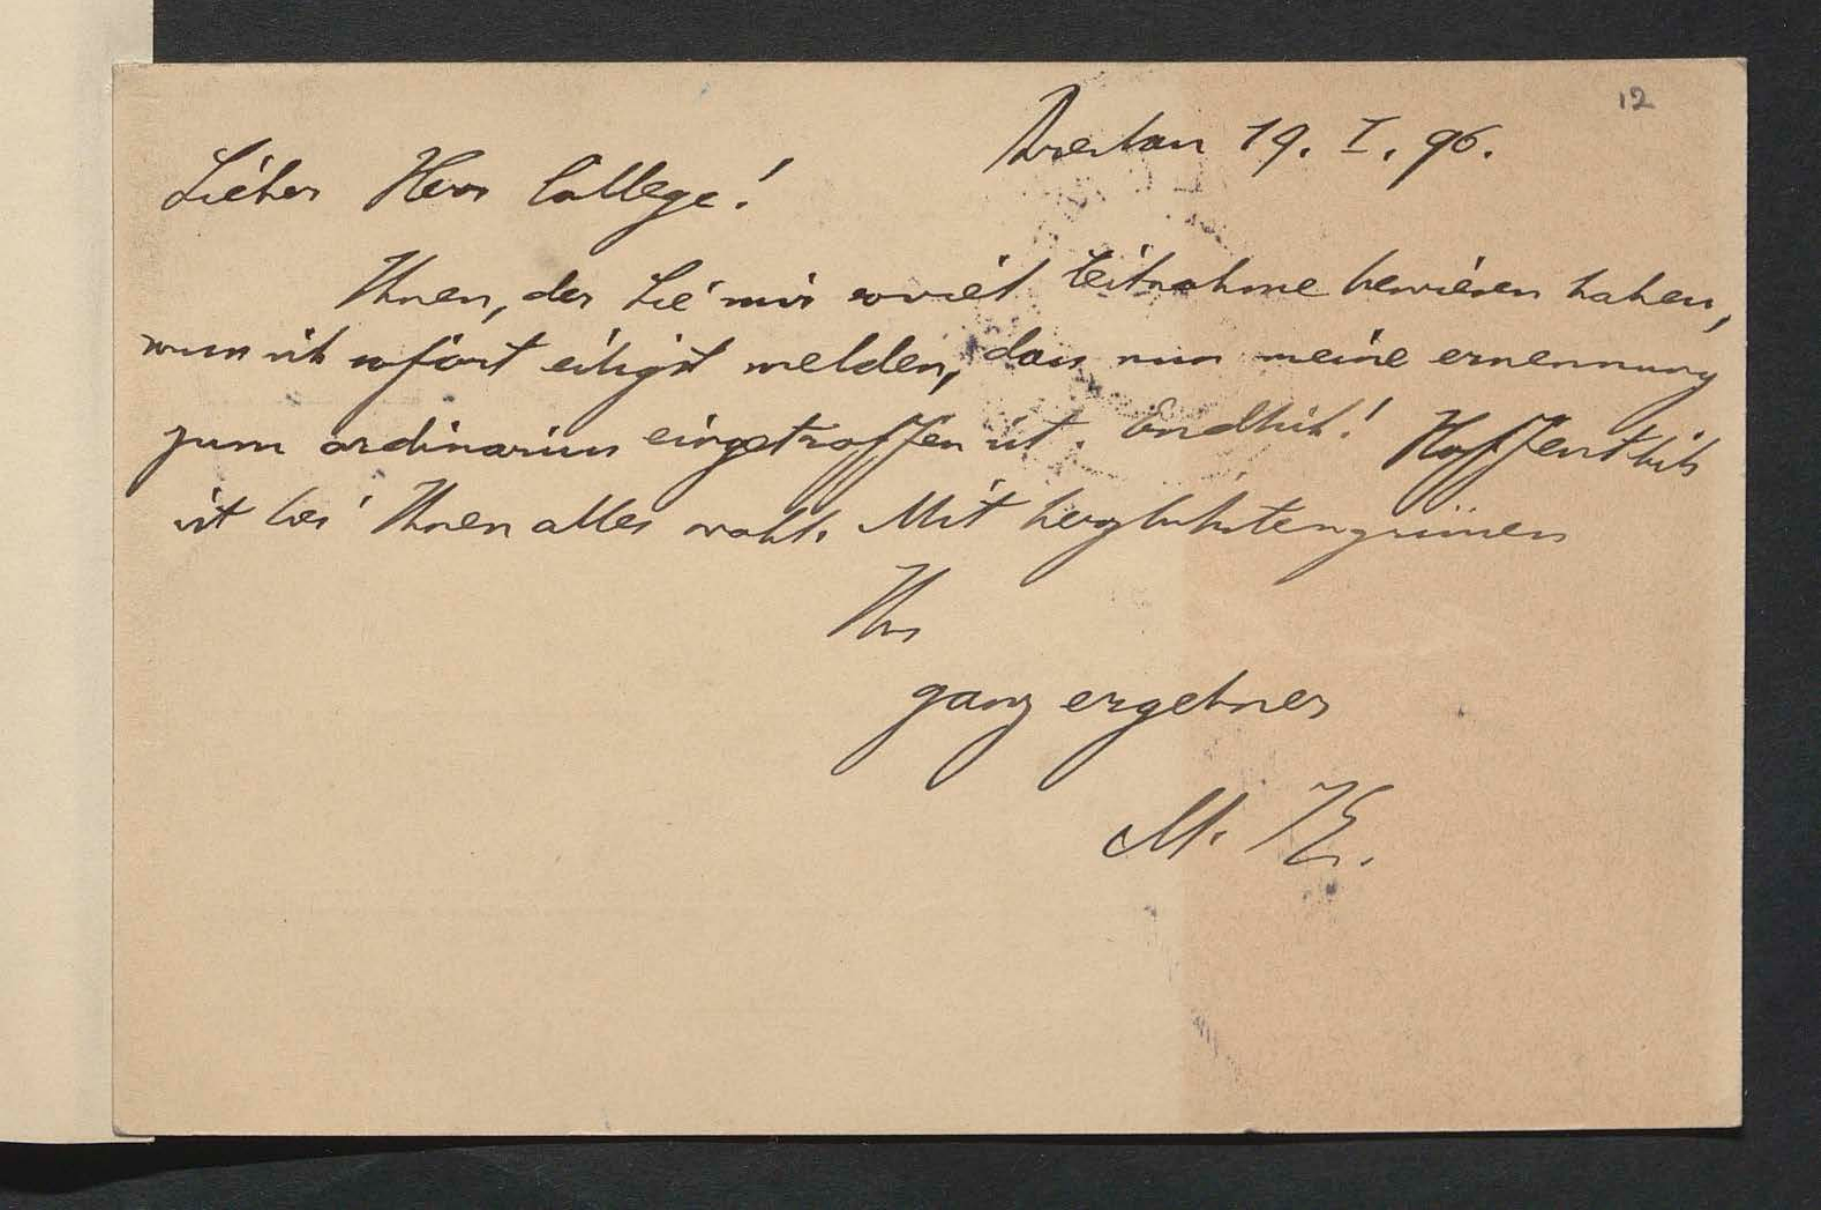 12
Breslau 19. I. 96.
Lieber Herr College!
Ihnen, der Sie mir soviel teilnahme bewiesen haben,
muss ich sofort eiligst melden, dass nun meine ernennung
zum ordinarius eingetroffen ist. Endlich! Hoffentlich
ist bei Ihnen alles wohl. Mit herzlichsten grüssen
Ihr
ganz ergebner
M. K.